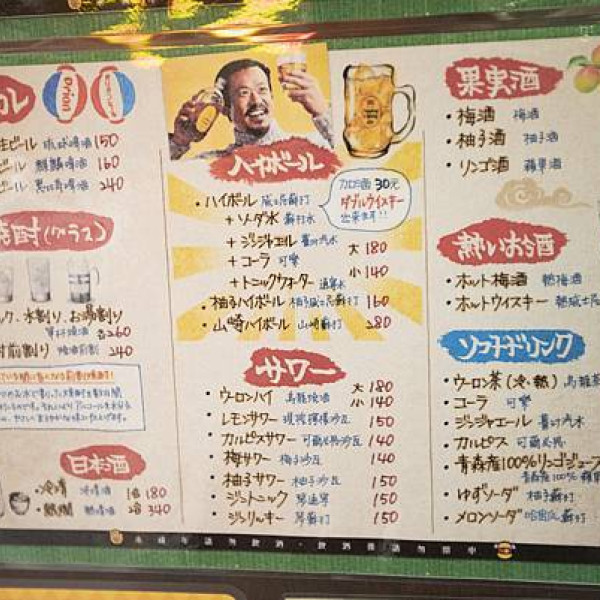 Orion
生ビール 琉球啤酒 150
ビール 麒麟啤酒 160
ビール 惠比壽啤酒 240
焼酎(グラス)
ック、水割り、お湯割り
各260
前割り 燒酒前割 240
日本酒
・冷清 冷清酒 1合 180
・熱燗 熱清酒 2合 340
ハイボール
加酒 30元
ダブルウイスキー
出来ます!!
・ハイボール 威士忌蘇打
+ソーダ水 蘇打水
+ジンジャエール 薑汁汽水 大 180
+コーラ 可樂 小 140
+トニックウォーター 通寧水
・柚子ハイボール 柚子威士忌蘇打 160
・山崎ハイボール 山崎蘇打 280
サワー
ウーロンハイ 烏龍燒酒 大 180 小 140
レモンサワー 現榨檸檬沙瓦 150
カルピスサワー 可爾必思沙瓦 140
梅サワー 梅子沙瓦 140
柚子サワー 柚子沙瓦 150
ジントニック 琴通寧 150
ジンリッキー 琴蘇打 150
果実酒
・梅酒 梅酒
・柚子酒 柚子酒
・リンゴ酒 蘋果酒
熱いお酒
・ホット梅酒 熱梅酒
・ホットウイスキー 熱威士忌
ソフトドリンク
・ウーロン茶(冷・熱) 烏龍茶
・コーラ 可樂
・ジンジャエール 薑汁汽水
・カルピス 可爾必思
・青森産100%リンゴジュース
青森産100%蘋
・ゆずソーダ 柚子蘇打
・メロンソーダ 哈密瓜蘇打
未成年請勿飲酒・飲酒後請勿開車